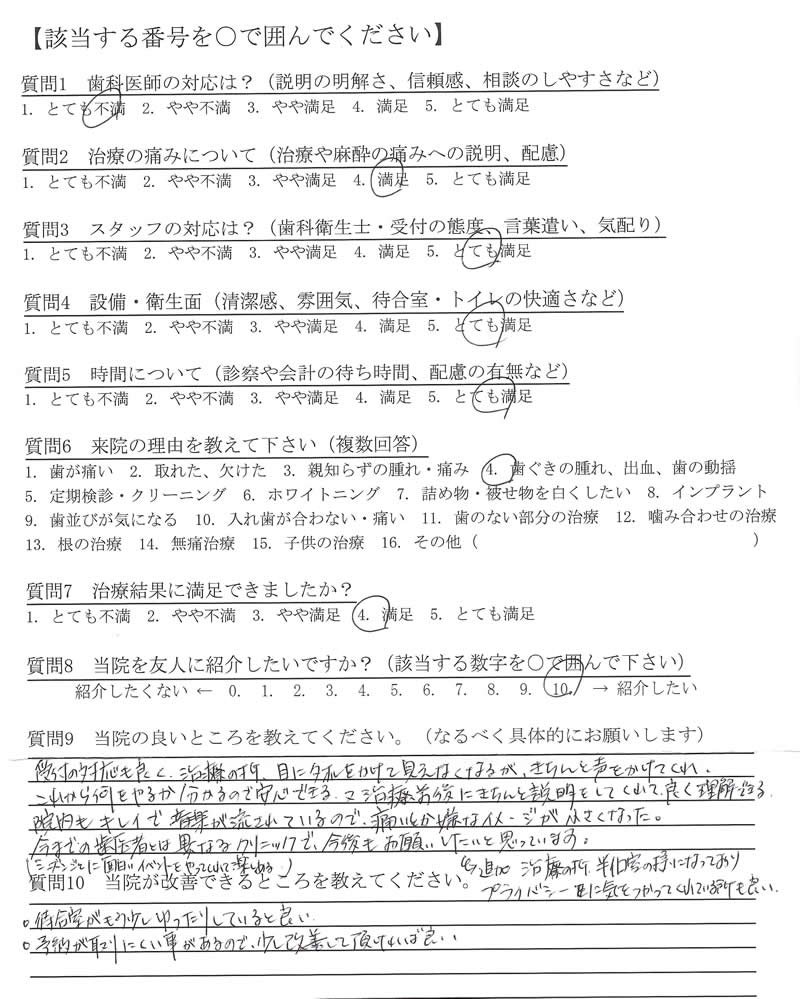 【該当する番号を〇で囲んでください】
質問1　歯科医師の対応は？（説明の明解さ、信頼感、相談のしやすさなど）
1. とても不満　2. やや不満　3. やや満足　4. 満足　5. とても満足
質問2　治療の痛みについて（治療や麻酔の痛みへの説明、配慮）
1. とても不満　2. やや不満　3. やや満足　4. 満足　5. とても満足
質問3　スタッフの対応は？（歯科衛生士・受付の態度、言葉遣い、気配り）
1. とても不満　2. やや不満　3. やや満足　4. 満足　5. とても満足
質問4　設備・衛生面（清潔感、雰囲気、待合室・トイレの快適さなど）
1. とても不満　2. やや不満　3. やや満足　4. 満足　5. とても満足
質問5　時間について（診察や会計の待ち時間、配慮の有無など）
1. とても不満　2. やや不満　3. やや満足　4. 満足　5. とても満足
質問6　来院の理由を教えて下さい（複数回答）
1. 歯が痛い　2. 取れた、欠けた　3. 親知らずの腫れ・痛み　4. 歯ぐきの腫れ、出血、歯の動揺
5. 定期検診・クリーニング　6. ホワイトニング　7. 詰め物・被せ物を白くしたい　8. インプラント
9. 歯並びが気になる　10. 入れ歯が合わない・痛い　11. 歯のない部分の治療　12. 噛み合わせの治療
13. 根の治療　14. 無痛治療　15. 子供の治療　16. その他（　　　　）
質問7　治療結果に満足できましたか？
1. とても不満　2. やや不満　3. やや満足　4. 満足　5. とても満足
質問8　当院を友人に紹介したいですか？（該当する数字を〇で囲んで下さい）
紹介したくない ← 0. 1. 2. 3. 4. 5. 6. 7. 8. 9. 10. → 紹介したい
質問9　当院の良いところを教えてください。（なるべく具体的にお願いします）
受付の対応も良く、治療の折、目にタオルをかけて見えなくなるが、きちんと声をかけてくれ、
これから何をやるか分かるので安心できる。治療前後にきちんと説明をしてくれて、良く理解できる
院内もキレイで音楽が流されているので、痛いとか嫌なイメージが小さくなった。
今までの歯医者とは異なるクリニックで、今後もお願いしたいと思っています。
(シーズンごとに面白いイベントをやっていて楽しめる)
追加 治療の折、半個室の様になっており
プライバシー面に気をつかってくれている所も良い。
質問10　当院が改善できるところを教えてください。
○待合室がもう少しゆったりしていると良い
○予約が取りにくい事があるので、少し改善して頂ければ良い